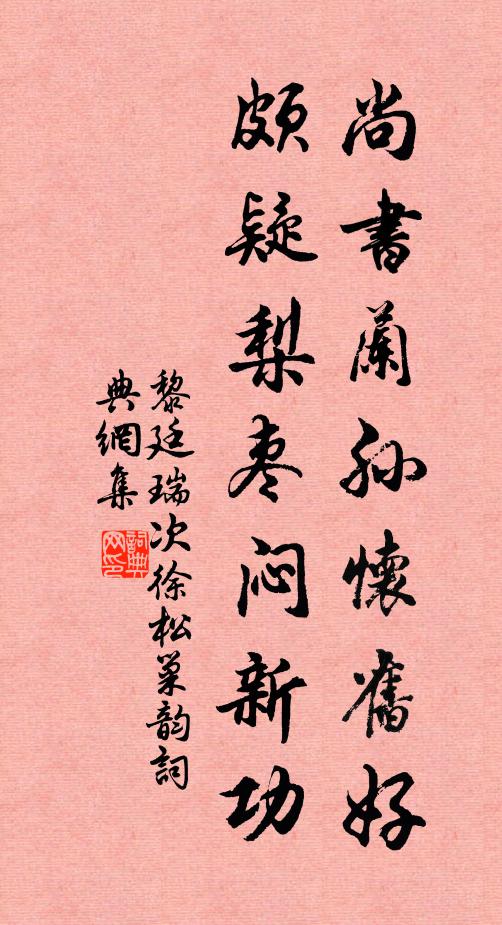 尚書蘭孙懷舊好
頗疑梨枣闷新功
黎廷瑞次徐松巢韵詞
典網集
詞典
网印